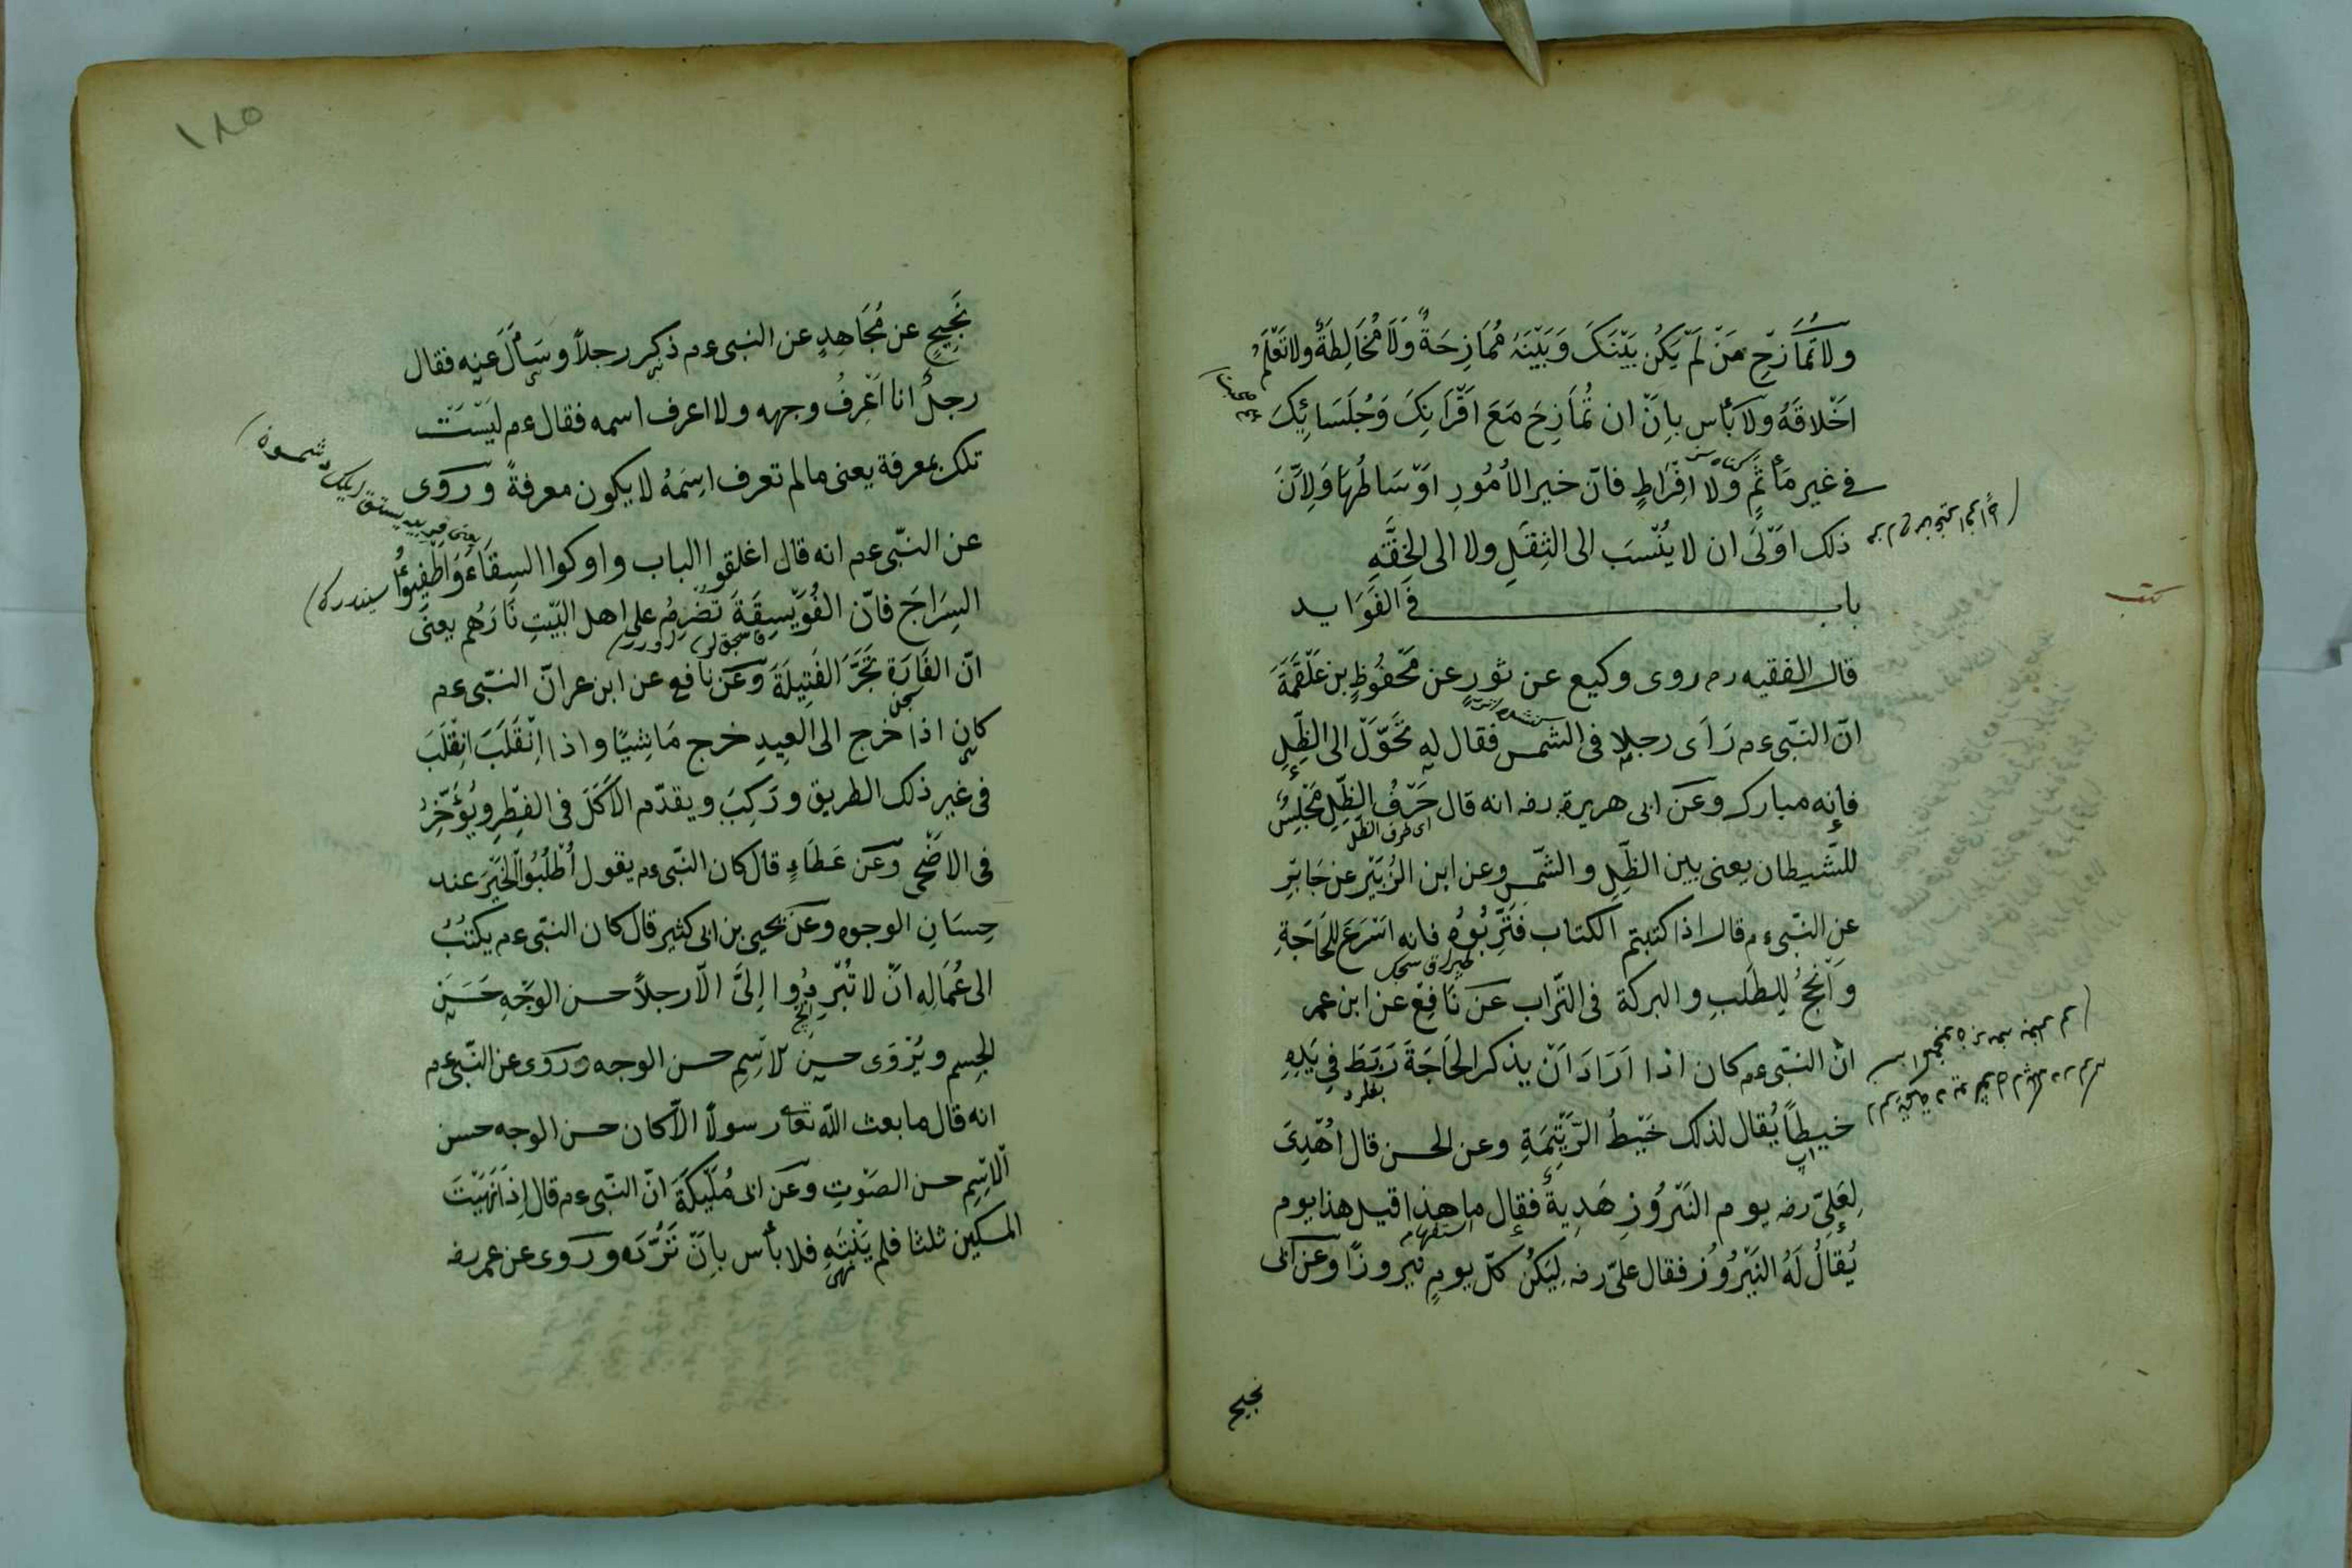 ولا تُمَازِحْ مَنْ لَمْ يَكُنْ بَيْنَكَ وَبَيْنَهُ مُمَازِحَةٌ وَلَا مُخَالِطَةٌ ولا تَعْلَمُ
اَخْلَاقَهُ ولا بَأْس بِاَنْ ان تُمَازِحَ مَعَ اَقْرَانِكَ وَجُلَسَائِكَ
فى غير مَأْثَمٍ وَلَا اِفْرَاطٍ فانّ خير الاُمُورِ اَوْسَاطُهَا وَلِاَنَّ
ذلك اَوْلَى ان لا يُنْسَبَ الى الثِقَلِ ولا الى الخِفَّةِ
باب فى الفَوَايد
قال الفقيه رم روى وكيع عن ثورٍ عن مَحْفُوظٍ بن عَلْقَمَةَ
انّ النبّى ءم رَاَى رجلا فى الشمس فقال له تَحَوَّلْ الى الظِّلِ
فإنه مبارك وعَن ابى هريرة رضه انه قال حَرْفُ الظِّلِ مَجْلِسُ
اى طرف الظل
للشّيطان يعنى بين الظِّلِ والشّمس وعن ابن الزُبَيْر عن جَابرِ
عنِ النبّى ءم قال اذا كتبتم الكتاب فَتَرِّبُوُه فانه اَسْرَعُ لِلحَاجَةِ
وَاَنْجَحُ لِلطَلَبِ والبركة فى التّراب عَنْ نَافِعْ عن ابن عمر
انّ النبّى ءم كان اذا اَرَادَ اَنْ يذكر الحَاجَةَ رَبَطَ فِى يَدِهِ
خيطاً يُقال لذلك خَيْطُ الرَّتِيْمَةِ وعن الحسن قال اُهْدِىَ
لِعَلِىّ رضه يوم النَيْرُوُزِ هَدِيةٌ فقال ما هذا قيل هذا يوم
استفهام
يُقالُ لَهُ النَيْرُوُز فقال علىّ رضه لِيَكُنْ كلّ يومٍ نيروزًا وعن ابى
نجيح
١٨٥
نَجِيحٍ عن مُجَاهِدٍ عن النبى ءم ذكر رجلاً وسَاَلَ عنه فقال
رجلٌ انا اَعْرِفُ وجهه ولا اعرف اسمه فقال ءم لَيْسَتْ
تلك بمعرفة يعنى مالم تعرف اسِمَهُ لا يكون معرفةً وَروَى
عن النبّى ءم انه قال اغلقوا الباب واوكوا السِقَاءَ وَاَطْفِيؤُا
السِرَاجَ فانّ الفُوَيْسِقَةَ تَضْرِمُ على اهل البَيْتِ نَارَهُم يعنَى
انّ الفَارَة تَجُرَّ الفَتِيلَةَ وَعَنْ نَافعٍ عن ابن عمر انّ النبّى ءم
كان اذا خرج الى العِيدِ خرج مَاشِيًا واذا اِنْقَلَبَ انِقْلَبَ
فى غير ذلك الطريق وَرَكِبَ ويقدّم الاَكْلَ فى الفِطْرِ وَيُؤَخِّرُ
فى الاَضْحى وَعَن عَطَاءٍ قال كان النبّى ءم يقول اُطْلُبُوا الخَيْرَ عند
حِسَانِ الوجوه وعَنْ يحيى بن ابى كثير قال كان النبّى ءم يكتبُ
الى عُمَالِه اَنْ لا تُبْرِدُوا اِلىَّ الّا رجلاً حسن الوجْهِ حَسَنَ
الجِسم ويُرْوَى حسن الاَسِمِ حسن الوجه وروَى عن النبّى ءم
انه قال ما بعث اللّه تعالى رسولاً الّا كان حسن الوجه حسن
الاسْمِ حسن الصَوْتِ وعَن ابى مُلَيْكَةَ انّ النبّى ءم قال اِذَا نَهَيْتَ
المسكين ثلثا فلم يَنْتَهِ فلا بأس بِاَنْ تَرُّدَه وَروى عن عمر رضه